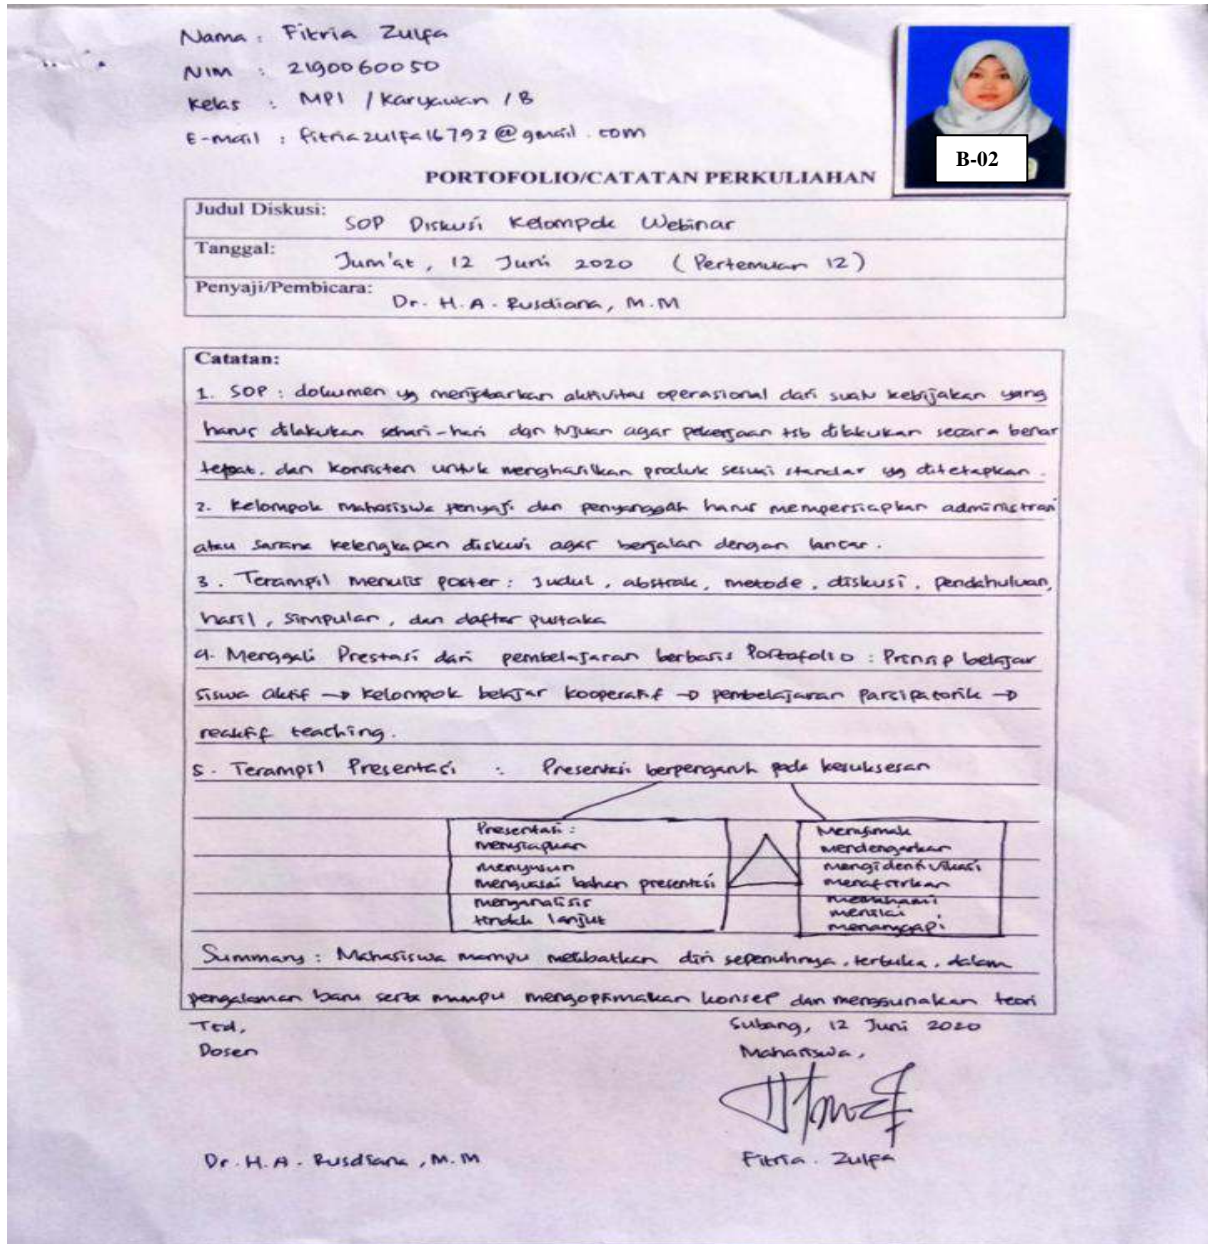 Nama : Fitria Zulfa
NIM : 2190060050
Kelas : MPI / Karyawan / B
E-mail : fitriazulfa16793@gmail.com
B-02
PORTOFOLIO/CATATAN PERKULIAHAN
Judul Diskusi: SOP Diskusi Kelompok Webinar
Tanggal: Jum'at, 12 Juni 2020 (Pertemuan 12)
Penyaji/Pembicara: Dr. H. A. Rusdiana, M.M
Catatan:
1. SOP : dokumen yg menjabarkan aktivitas operasional dari suatu kebijakan yang
harus dilakukan sehari-hari dgn tujuan agar pekerjaan tsb dilakukan secara benar
tepat, dan konsisten untuk menghasilkan produk sesuai standar yg ditetapkan.
2. Kelompok mahasiswa penyaji dan penyanggah harus mempersiapkan administrasi
atau sarana kelengkapan diskusi agar berjalan dengan lancar.
3. Terampil menulis poster : Judul, abstrak, metode, diskusi, pendahuluan,
hasil, simpulan, dan daftar pustaka
4. Menggali Prestasi dari pembelajaran berbasis Portofolio : Prinsip belajar
siswa aktif → kelompok belajar kooperatif → pembelajaran parsipatorik →
reaktif teaching.
5. Terampil Presentasi : Presentasi berpengaruh pada kesuksesan
Presentasi :
menyiapkan
menyusun
menguasai bahan presentasi
menganalisis
tindak lanjut
Menyimak
mendengarkan
mengidentifikasi
menafsirkan
memahami
menilai
menanggapi
Summary : Mahasiswa mampu melibatkan diri sepenuhnya, terbuka, dalam
pengalaman baru serta mampu mengoptimakan konsep dan menggunakan teori
Ttd,
Dosen
Dr. H. A. Rusdiana, M.M
Subang, 12 Juni 2020
Mahasiswa,
Fitria. Zulfa